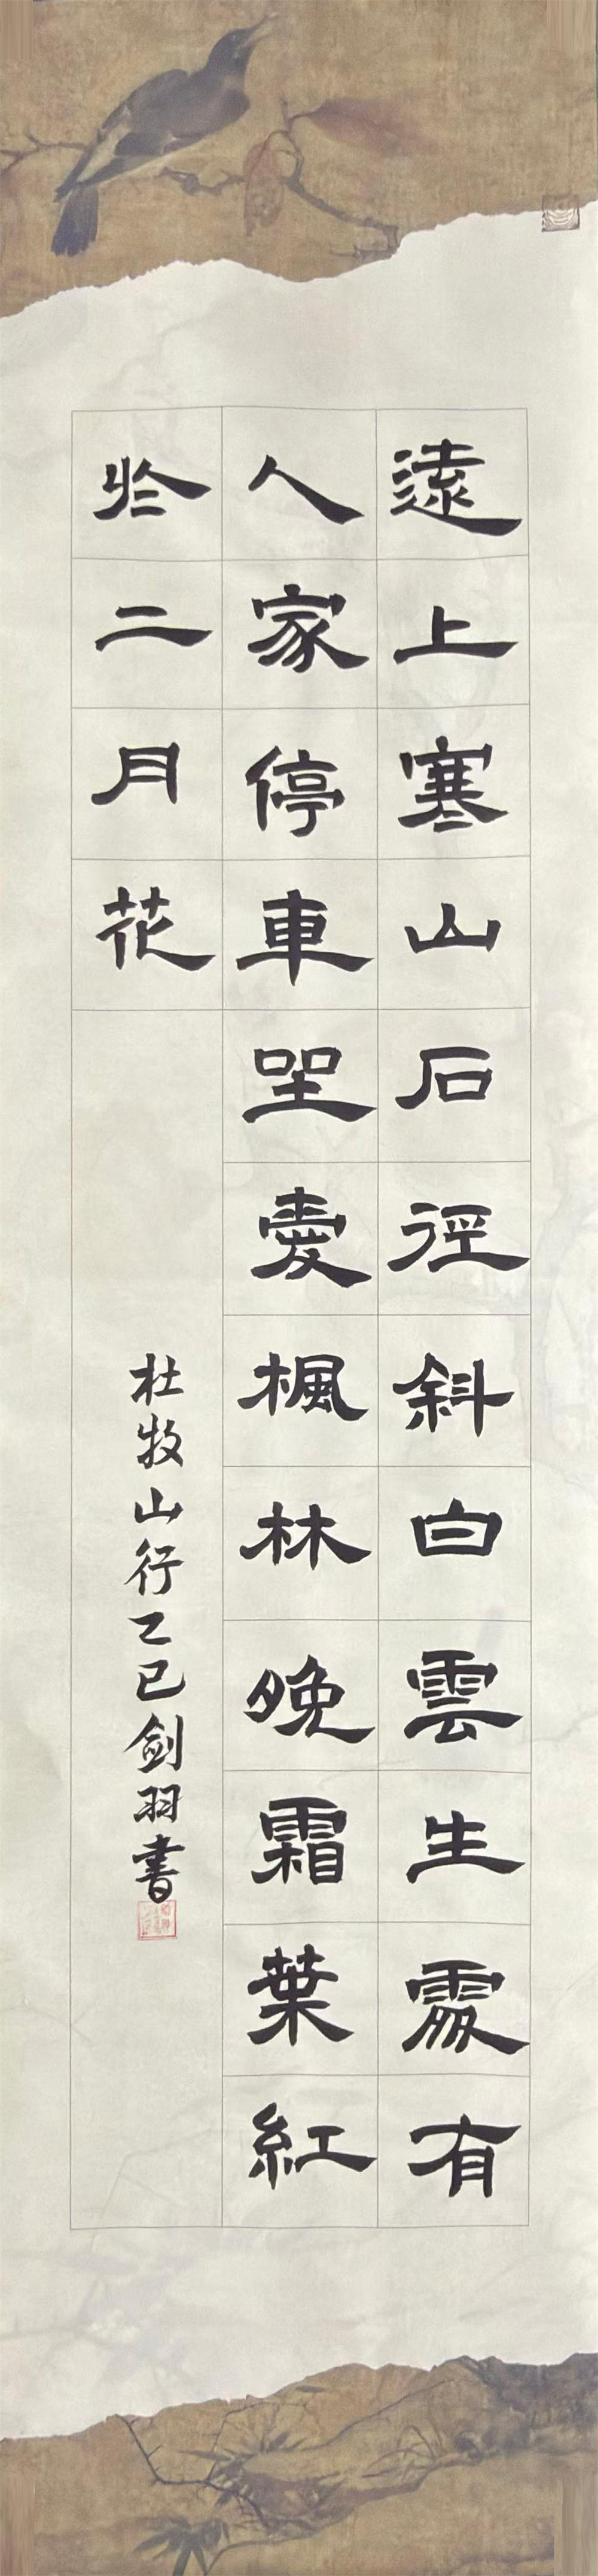 遠上寒山石徑斜白雲生處有
人家停車坐愛楓林晚霜葉紅
於二月花
杜牧山行乙巳劍羽書